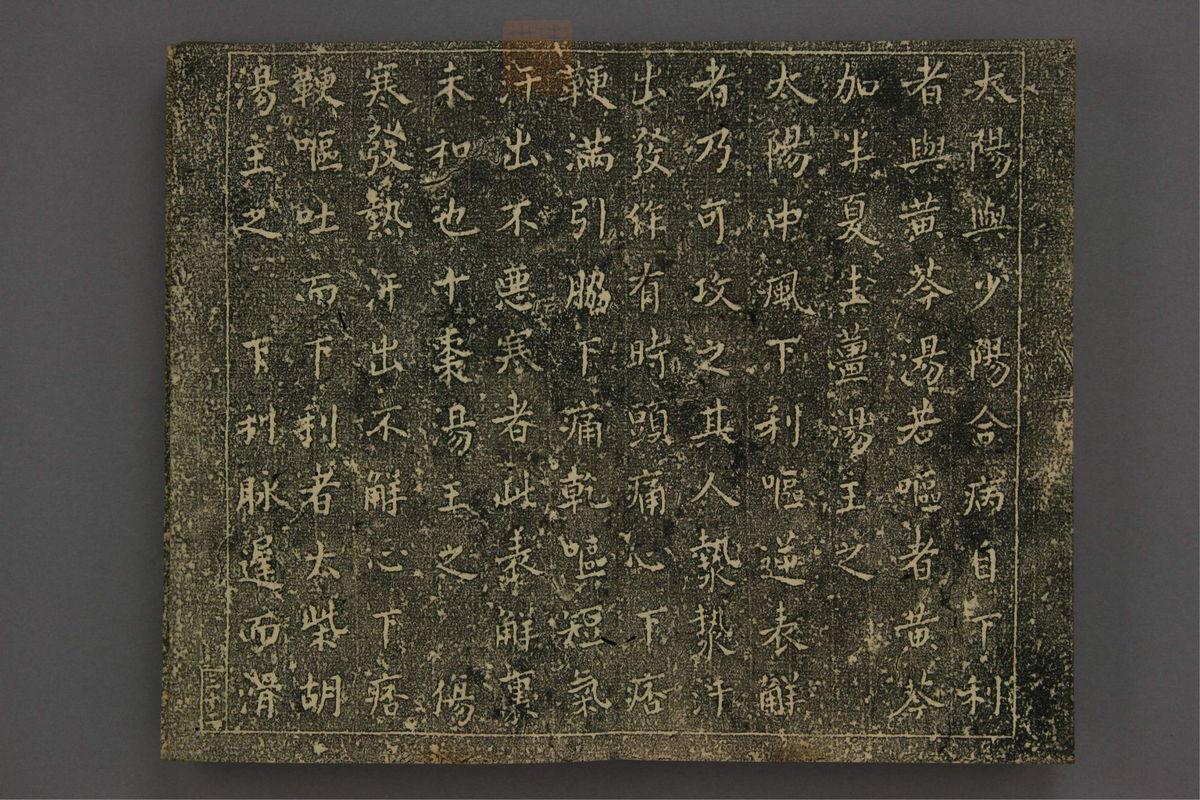 太陽與少陽合病自下利
者與黄芩湯若嘔者黄芩
加半夏生薑湯主之
太陽中風下利嘔逆表解
者乃可攻之其人漐漐汗
出發作有時頭痛心下痞
鞕滿引脇下痛乾嘔短氣
汗出不惡寒者此表解裏
未和也十棗湯主之傷
寒發熱汗出不解心下痞
鞕嘔吐而下利者大柴胡
湯主之下利脉遲而滑